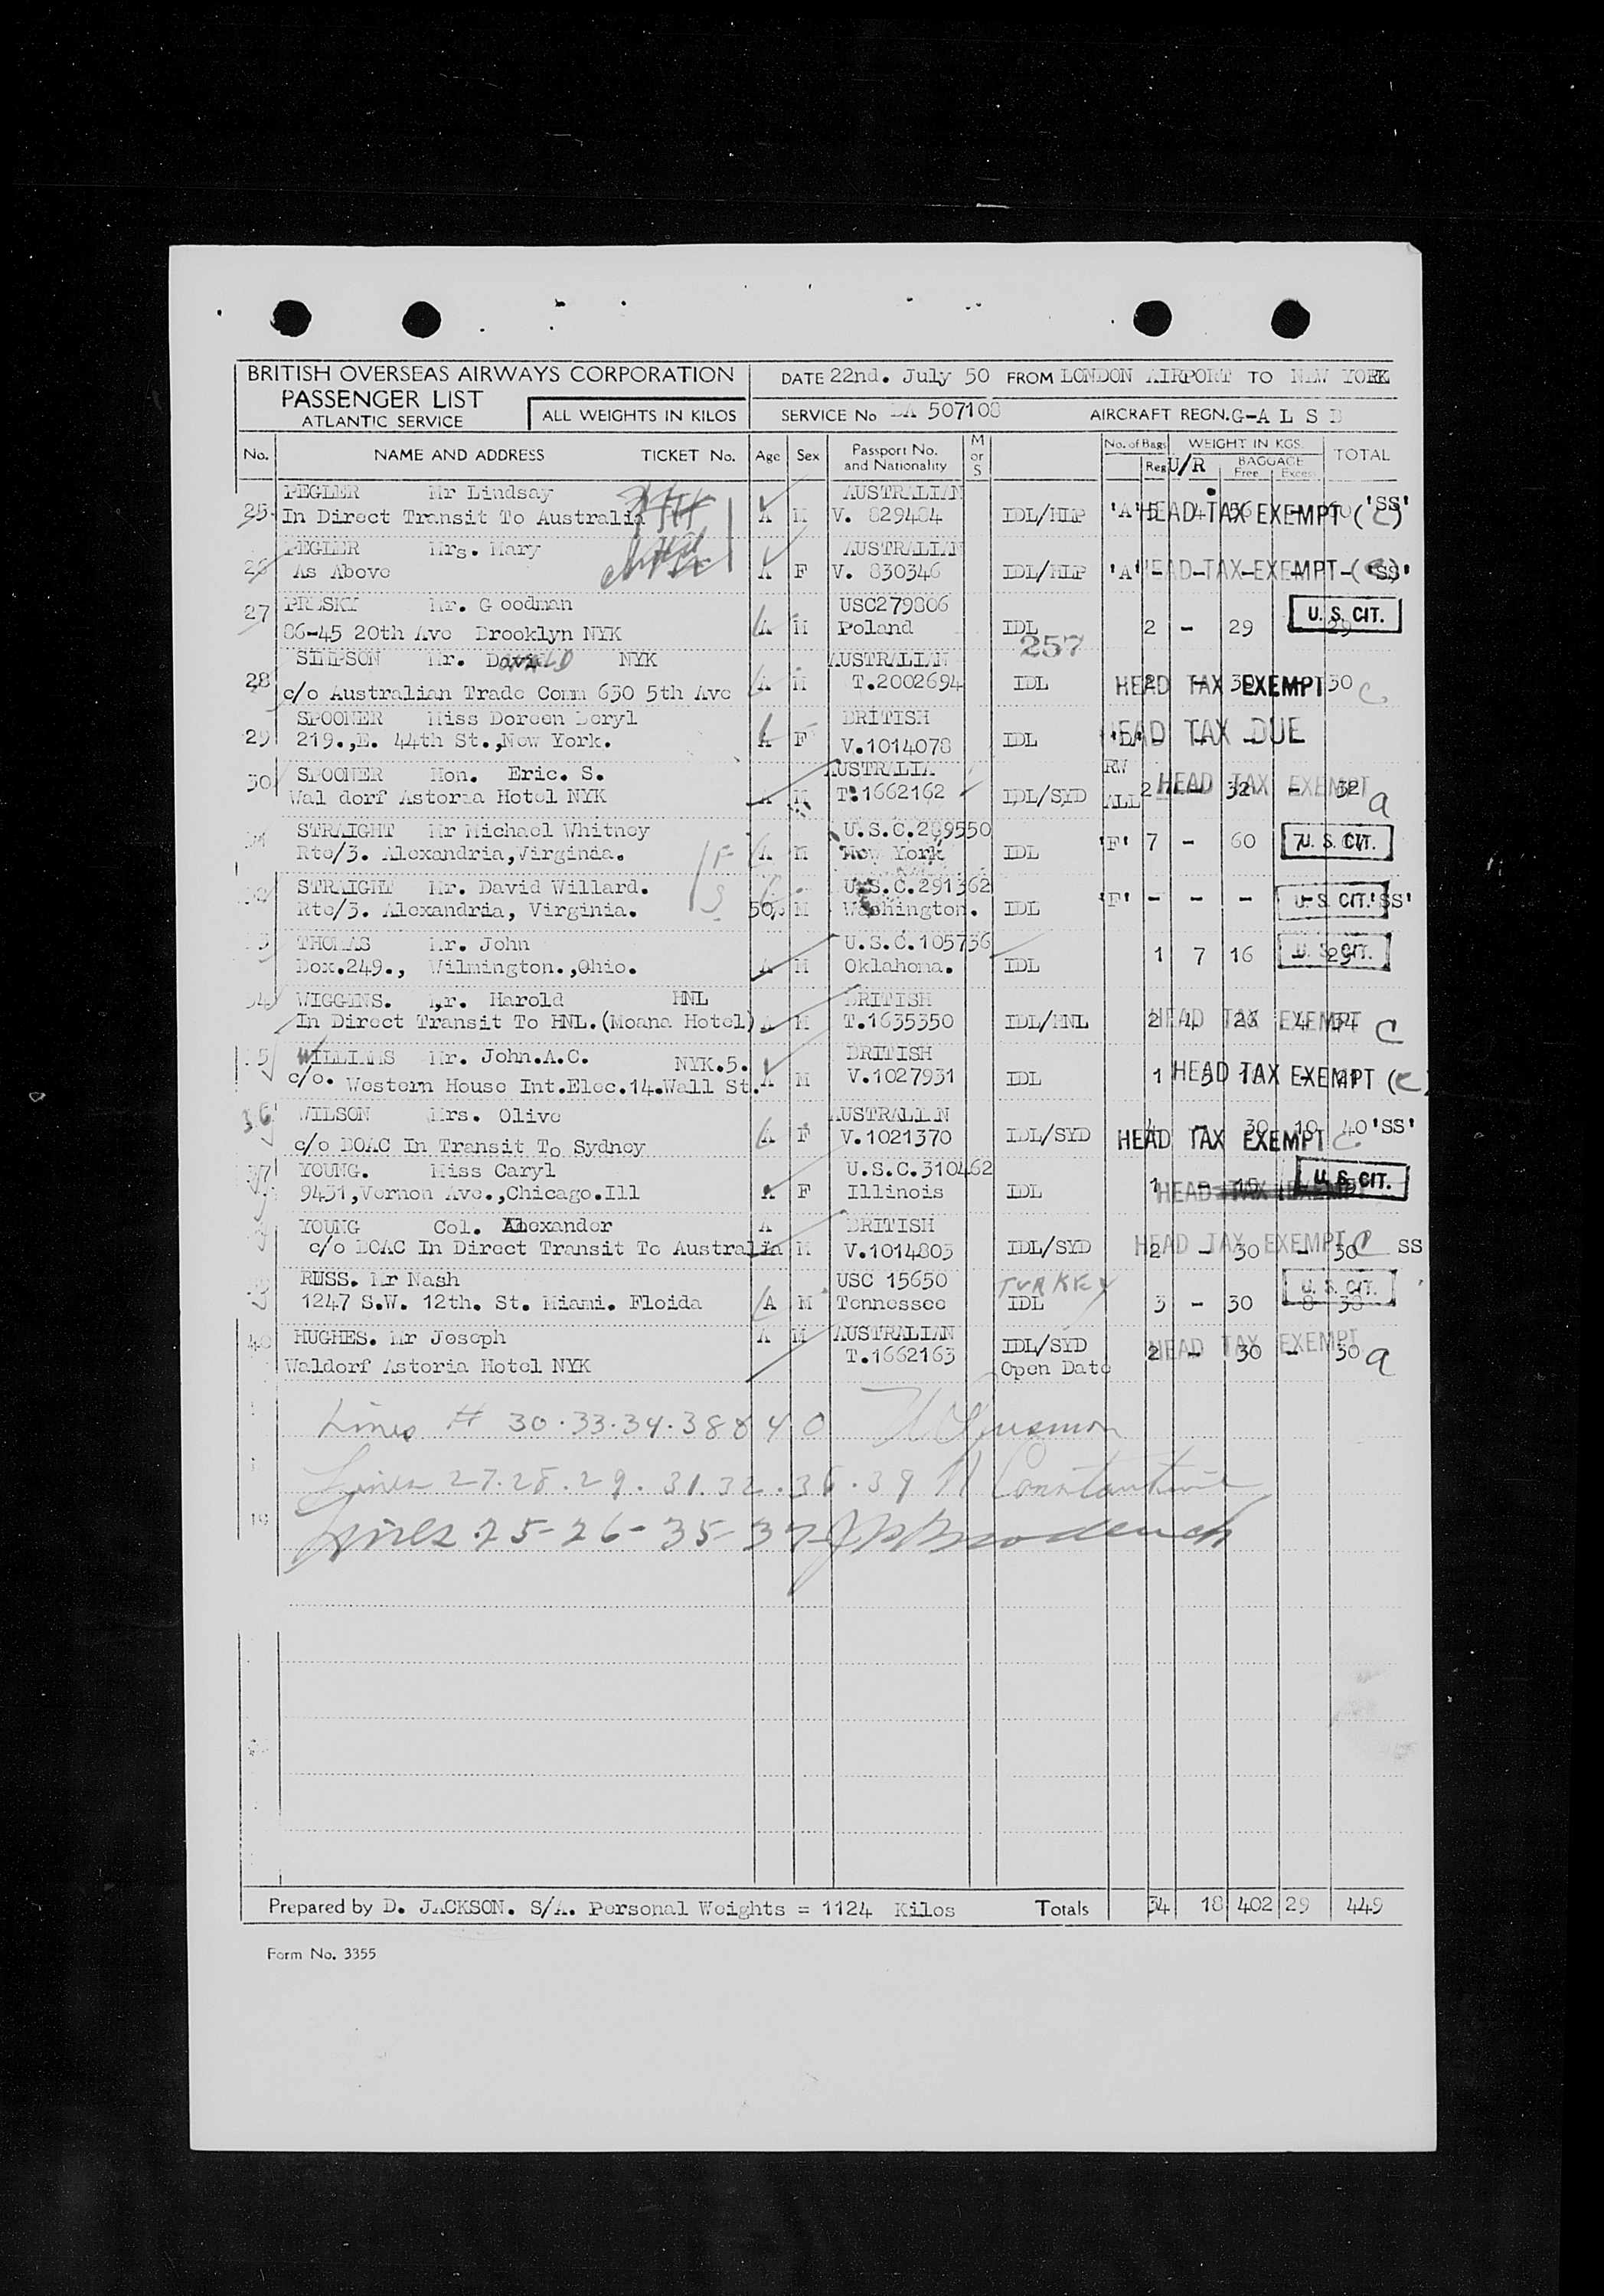 BRITISH OVERSEAS AIRWAYS CORPORATION
PASSENGER LIST
ATLANTIC SERVICE
ALL WEIGHTS IN KILOS
DATE 22nd. July 50 FROM LONDON AIRPORT TO NEW YORK
SERVICE No BA 507108 AIRCRAFT REGN. G-A L S D
No. NAME AND ADDRESS TICKET No. Age Sex Passport No. and Nationality M or S No. of Bags Reg U/R WEIGHT IN KGS. BAGGAGE Free Excess TOTAL
PEGLER Mr Lindsay AUSTRALIAN
25 In Direct Transit To Australia A M V. 829484 IDL/HLP 'A' HEAD TAX EXEMPT (C) 'SS'
PEGLER Mrs. Mary AUSTRALIAN
26 As Above A F V. 830346 IDL/HLP 'A' - HEAD TAX EXEMPT 'SS'
PRESKY Mr. G oodman USC279806
27 86-45 20th Ave Brooklyn NYK A M Poland IDL 2 - 29 U. S. CIT. 29
257
SIMPSON Mr. David NYK AUSTRALIAN
28 c/o Australian Trade Comm 630 5th Ave A M T.2002694 IDL HEAD TAX EXEMPT 30 C
SPOONER Miss Doreen Beryl BRITISH
29 219.,E. 44th St.,New York. A F V.1014078 IDL HEAD TAX DUE
30 SPOONER Hon. Eric. S. AUSTRALIA RW
Wal dorf Astoria Hotel NYK A M T.1662162 IDL/SYD ALL 2 - 32 - 32 HEAD TAX EXEMPT a
STRAIGHT Mr Michael Whitney U.S.C.289550
Rte/3. Alexandria,Virginia. A M New York IDL 'F' 7 - 60 7 U. S. CIT.
STRAIGHT Mr. David Willard. U.S.C.291362
Rte/3. Alexandria, Virginia. 50% M Washington. IDL 'F' - - - U. S. CIT. 'SS'
THOMAS Mr. John U.S.C.105736
Box.249., Wilmington.,Ohio. A M Oklahoma. IDL 1 7 16 U. S. CIT. 23
34 WIGGINS. Mr. Harold HNL BRITISH
In Direct Transit To HNL.(Moana Hotel) A M T.1635350 IDL/HNL 2 4 26 4 34 HEAD TAX EXEMPT C
35 WILLIAMS Mr. John.A.C. NYK.5. BRITISH
c/o. Western House Int.Elec.14.Wall St. A M V.1027931 IDL 1 HEAD TAX EXEMPT (C)
36 WILSON Mrs. Olive AUSTRALIAN
c/o BOAC In Transit To Sydney A F V.1021370 IDL/SYD 4 - 30 10 40 'SS' HEAD TAX EXEMPT C
37 YOUNG. Miss Caryl U.S.C.310462
9431,Vernon Ave.,Chicago.Ill A F Illinois IDL 1 - HEAD TAX EXEMPT U. S. CIT.
YOUNG Col. Alexander A BRITISH
c/o BOAC In Direct Transit To Australia M V.1014803 IDL/SYD 2 - 30 - 30 HEAD TAX EXEMPT C SS
RUSS. Mr Nash USC 15650 TURKEY
1247 S.W. 12th. St. Miami. Floida A M Tennessee IDL 3 - 30 8 38 U. S. CIT.
40 HUGHES. Mr Joseph A M AUSTRALIAN IDL/SYD
Waldorf Astoria Hotel NYK T.1662163 Open Date 2 - 30 - 30 HEAD TAX EXEMPT a
Lines # 30.33.34.38 & 40
Lines 27.28.29.31.32.36.39 Constantine
Lines 25-26-35-37
Prepared by D. JACKSON. S/A. Personal Weights = 1124 Kilos Totals 34 18 402 29 449
Form No. 3355